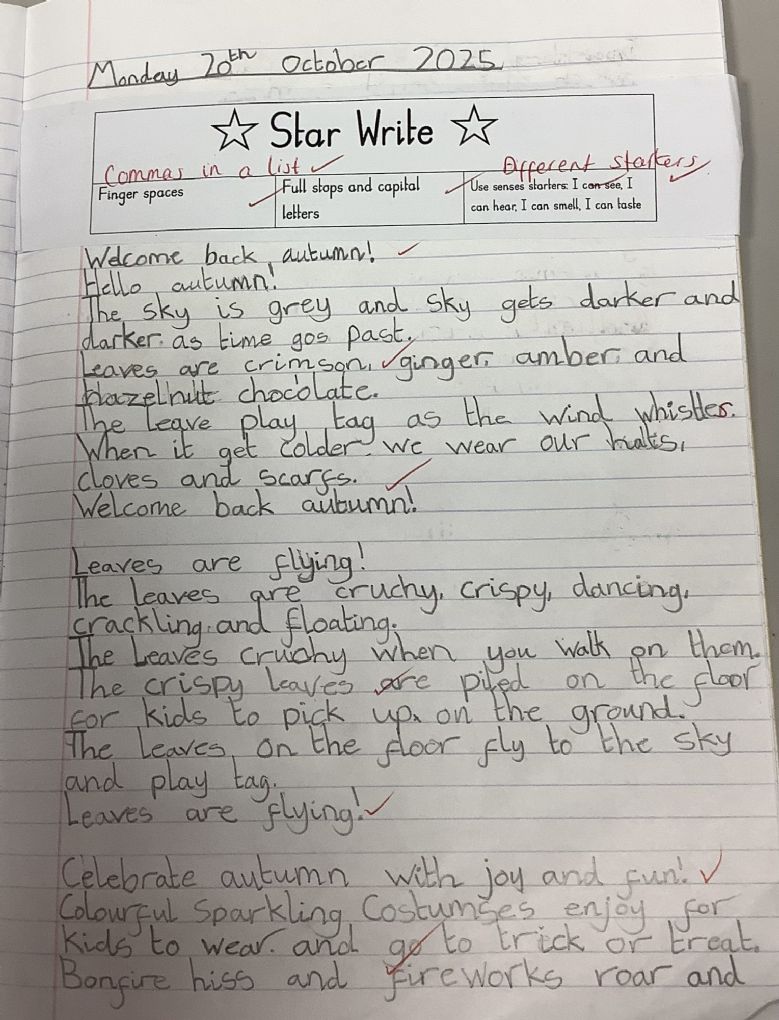 Monday 20th October 2025
☆ Star Write ☆
Commas in a list ✓ Different starters ✓
Finger spaces
Full stops and capital letters
Use senses starters: I can see, I can hear, I can smell, I can taste
Welcome back, autumn!
Hello, autumn!
The sky is grey and sky gets darker and
darker. as time gos past.
Leaves are crimson, ginger, amber, and
hazelnut chocolate.
The leave play tag as the wind whistles.
When it get colder we wear our hats,
cloves and scarfs.
Welcome back autumn!
Leaves are flying!
The leaves are cruchy, crispy, dancing,
crackling, and floating.
The Leaves cruchy when you walk on them.
The crispy leaves are piled on the floor
for kids to pick up, on the ground.
The leaves on the floor fly to the sky
and play tag.
Leaves are flying!
Celebrate autumn with joy and fun!
Colourful Sparkling Costumses enjoy for
kids to wear. and go to trick or treat.
Bonfire hiss and fireworks roar and